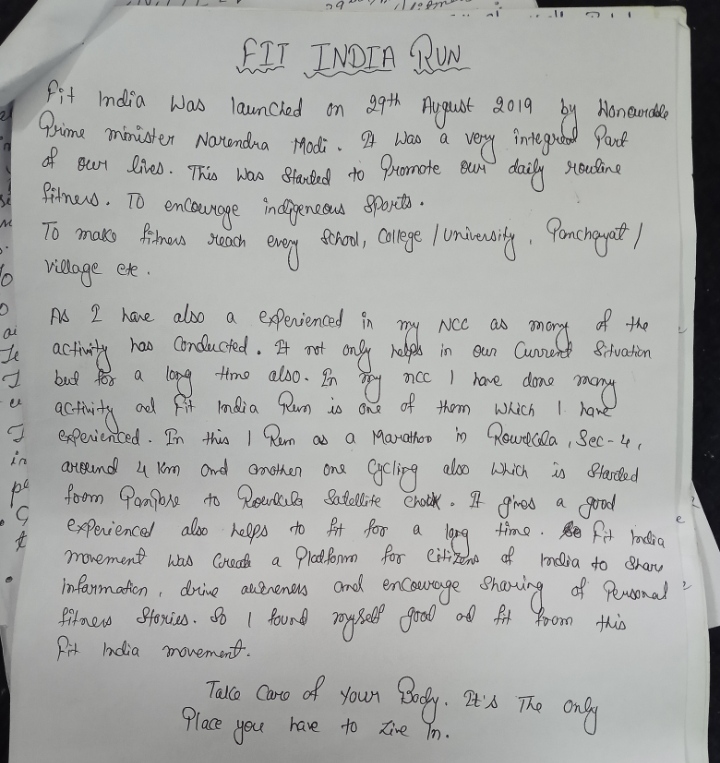 FIT INDIA RUN
Fit India was launched on 29th August 2019 by Honourable
Prime minister Narendra Modi. It was a very integreal Part
of our lives. This was started to Promote our daily routine
fitness. To encourage indigeneous sports.
To make fitness reach every School, College / University, Panchayat /
village etc.
As I have also a experienced in my NCC as many of the
activity has conducted. It not only helps in our Current Situation
but for a long time also. In my ncc I have done many
activity and Fit India Run is one of them which I have
experienced. In this I Run as a Marathon in Rourkela, Sec-4,
around 4 km and another one Cycling also which is started
from Panpose to Rourkela Satellite chowk. It gives a good
experienced also helps to fit for a long time. Fit India
movement was Create a Platform for Citizens of India to Share
Information, drive awareness and encourage Sharing of Personal
fitness Stories. So I found myself good ad fit from this
Fit India movement.
Take Care of Your Body. It's The only
Place you have to Live In.